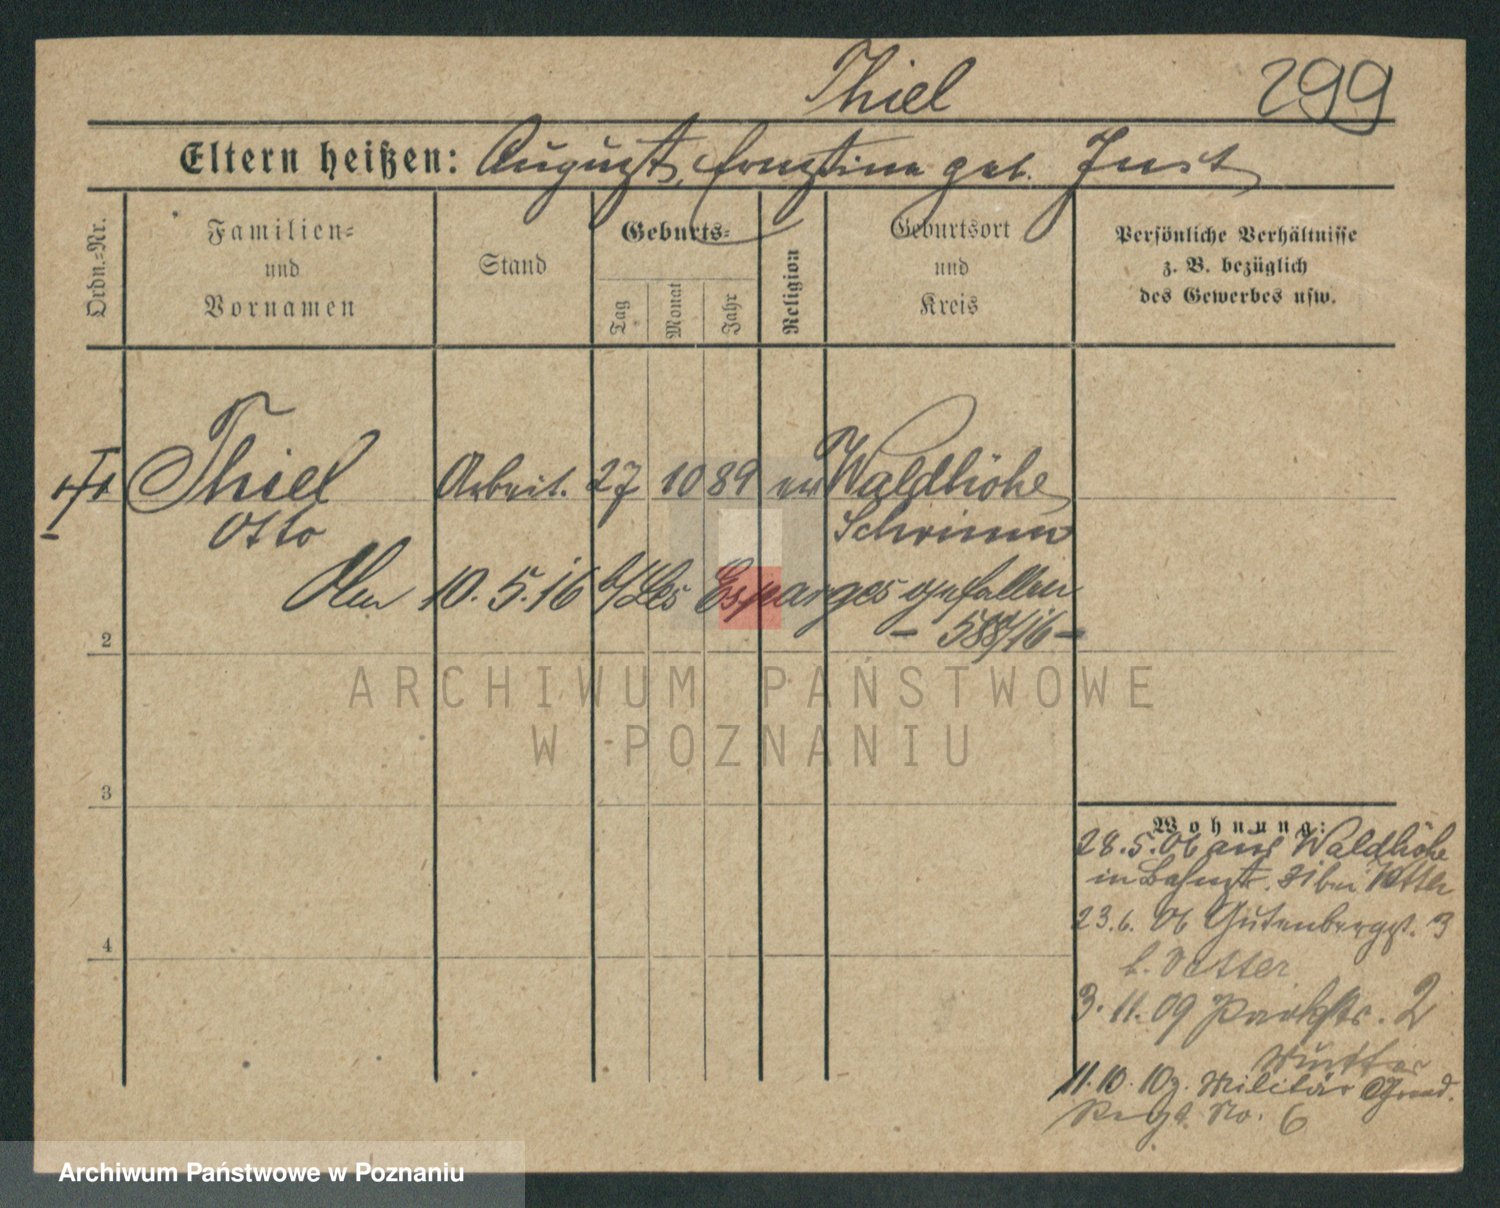 Thiel 299
Eltern heißen: August, Ernstine geb. Just
Ordn.=Nr.
Familien=
und
Vornamen
Stand
Geburts=
Tag
Monat
Jahr
Religion
Geburtsort
und
Kreis
Persönliche Verhältnisse
z. B. bezüglich
des Gewerbes usw.
Thiel Arbeit. 27 10 89 ev Waldhöhe
Otto Schrimm
Am 10. 5. 16 b/Les Esparges gefallen
2
3
4
Wohnung:
28.5.06 aus Waldhöhe
in Bahnst. 31 bei
23.6.06 Gutenbergst. 3
b. Vetter
3.11.09 Parkstr. 2
Mutter
11.10.10 z. Militär Gren
Regt. No. 6
ARCHIWUM PAŃSTWOWE
W POZNANIU
Archiwum Państwowe w Poznaniu